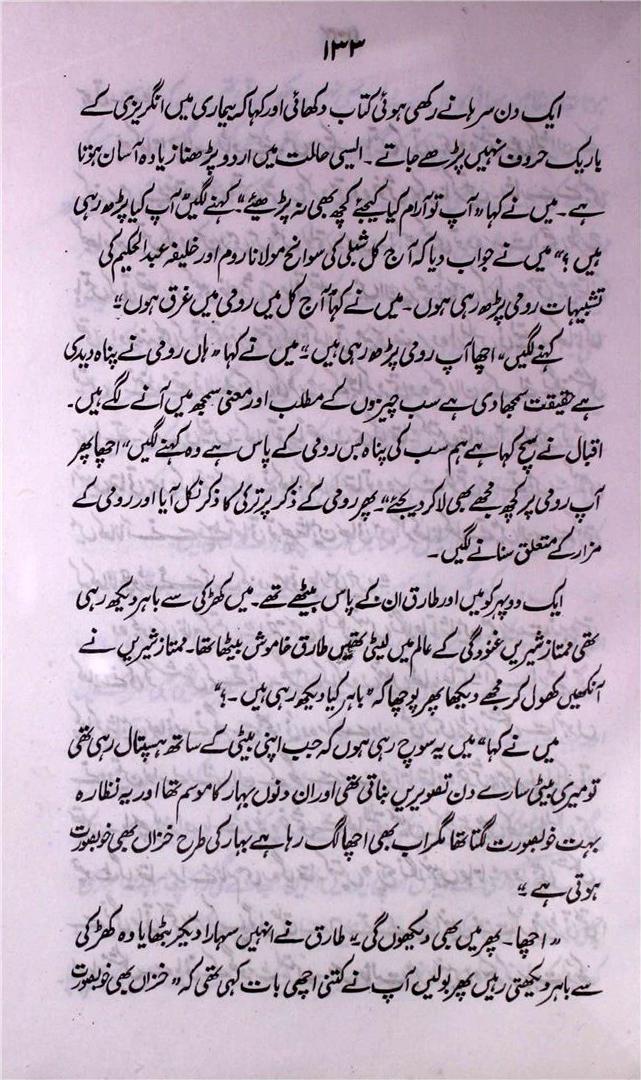 ۱۳۳
ایک دن سرہانے رکھی ہوئی کتاب دکھائی اور کہا کہ بیماری میں انگریزی کے
باریک حروف نہیں پڑھے جاتے۔ ایسی حالت میں اردو پڑھنا زیادہ آسان ہوتا
ہے۔ میں نے کہا "آپ تو آرام کیا کیجئے کچھ بھی نہ پڑھیئے"۔ کہنے لگیں "آپ کیا پڑھ رہی
ہیں؟" میں نے جواب دیا کہ آج کل شبلی کی سوانح مولانا روم اور خلیفہ عبدالحکیم کی
تشبیہات رومی پڑھ رہی ہوں۔ میں نے کہا "آج کل میں رومی میں غرق ہوں"
کہنے لگیں "اچھا آپ رومی پڑھ رہی ہیں"۔ میں نے کہا "ہاں رومی نے پناہ دیدی
ہے حقیقت سمجھا دی ہے سب چیزوں کے مطلب اور معنی سمجھ میں آنے لگے ہیں۔
اقبال نے سچ کہا ہے ہم سب کی پناہ بس رومی کے پاس ہے وہ کہنے لگیں "اچھا پھر
آپ رومی پر کچھ مجھے بھی لا کر دیجئے"۔ پھر رومی کے ذکر پر ترکی کا ذکر نکل آیا اور رومی کے
مزار کے متعلق سنانے لگیں۔
ایک دوپہر کو میں اور طارق ان کے پاس بیٹھے تھے۔ میں کھڑکی سے باہر دیکھ رہی
تھی ممتاز شیریں غنودگی کے عالم میں لیٹی تھیں طارق خاموش بیٹھا تھا۔ ممتاز شیریں نے
آنکھیں کھول کر مجھے دیکھا پھر پوچھا کہ "باہر کیا دیکھ رہی ہیں۔؟"
میں نے کہا "میں یہ سوچ رہی ہوں کہ جب اپنی بیٹی کے ساتھ ہسپتال رہی تھی
تو میری بیٹی سارے دن تصویریں بناتی تھی اور ان دنوں بہار کا موسم تھا اور یہ نظارہ
بہت خوبصورت لگتا تھا مگر اب بھی اچھا لگ رہا ہے بہار کی طرح خزاں بھی خوبصورت
ہوتی ہے"
"اچھا۔ پھر میں بھی دیکھوں گی" طارق نے انہیں سہارا دیکر بٹھایا وہ کھڑکی
سے باہر دیکھتی رہیں پھر بولیں آپ نے کتنی اچھی بات کہی تھی کہ "خزاں بھی خوبصورت